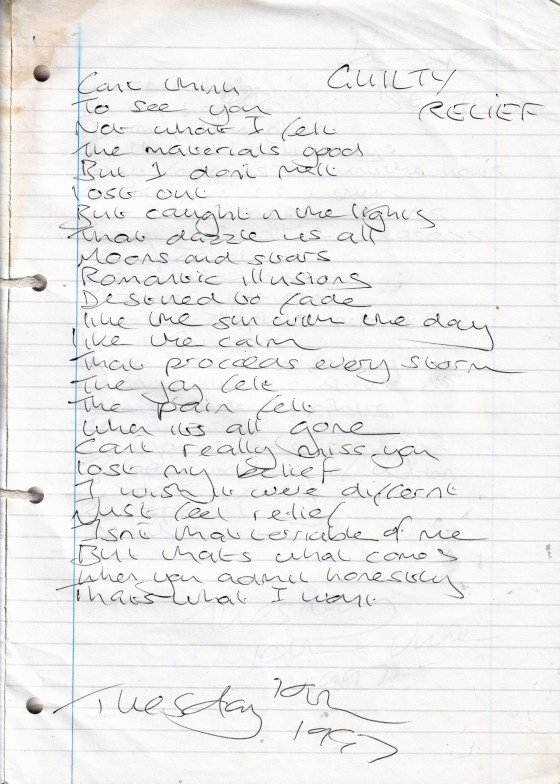 GUILTY
RELIEF
Cant think
To see you
Not what I felt
The materials good
But I don't melt
lost out
But caught in the lights
That dazzle us all
Moons and stars
Romantic illusions
Destined to fade
like the sun with the day
like the calm
That proceeds every storm
The joy felt
The pain felt
When its all gone
Cant really miss you
lost my belief
I wish it were different
Just feel relief
Isnt that terriable of me
But thats what comes
When you admit honestly
thats what I want
Tuesday 10th